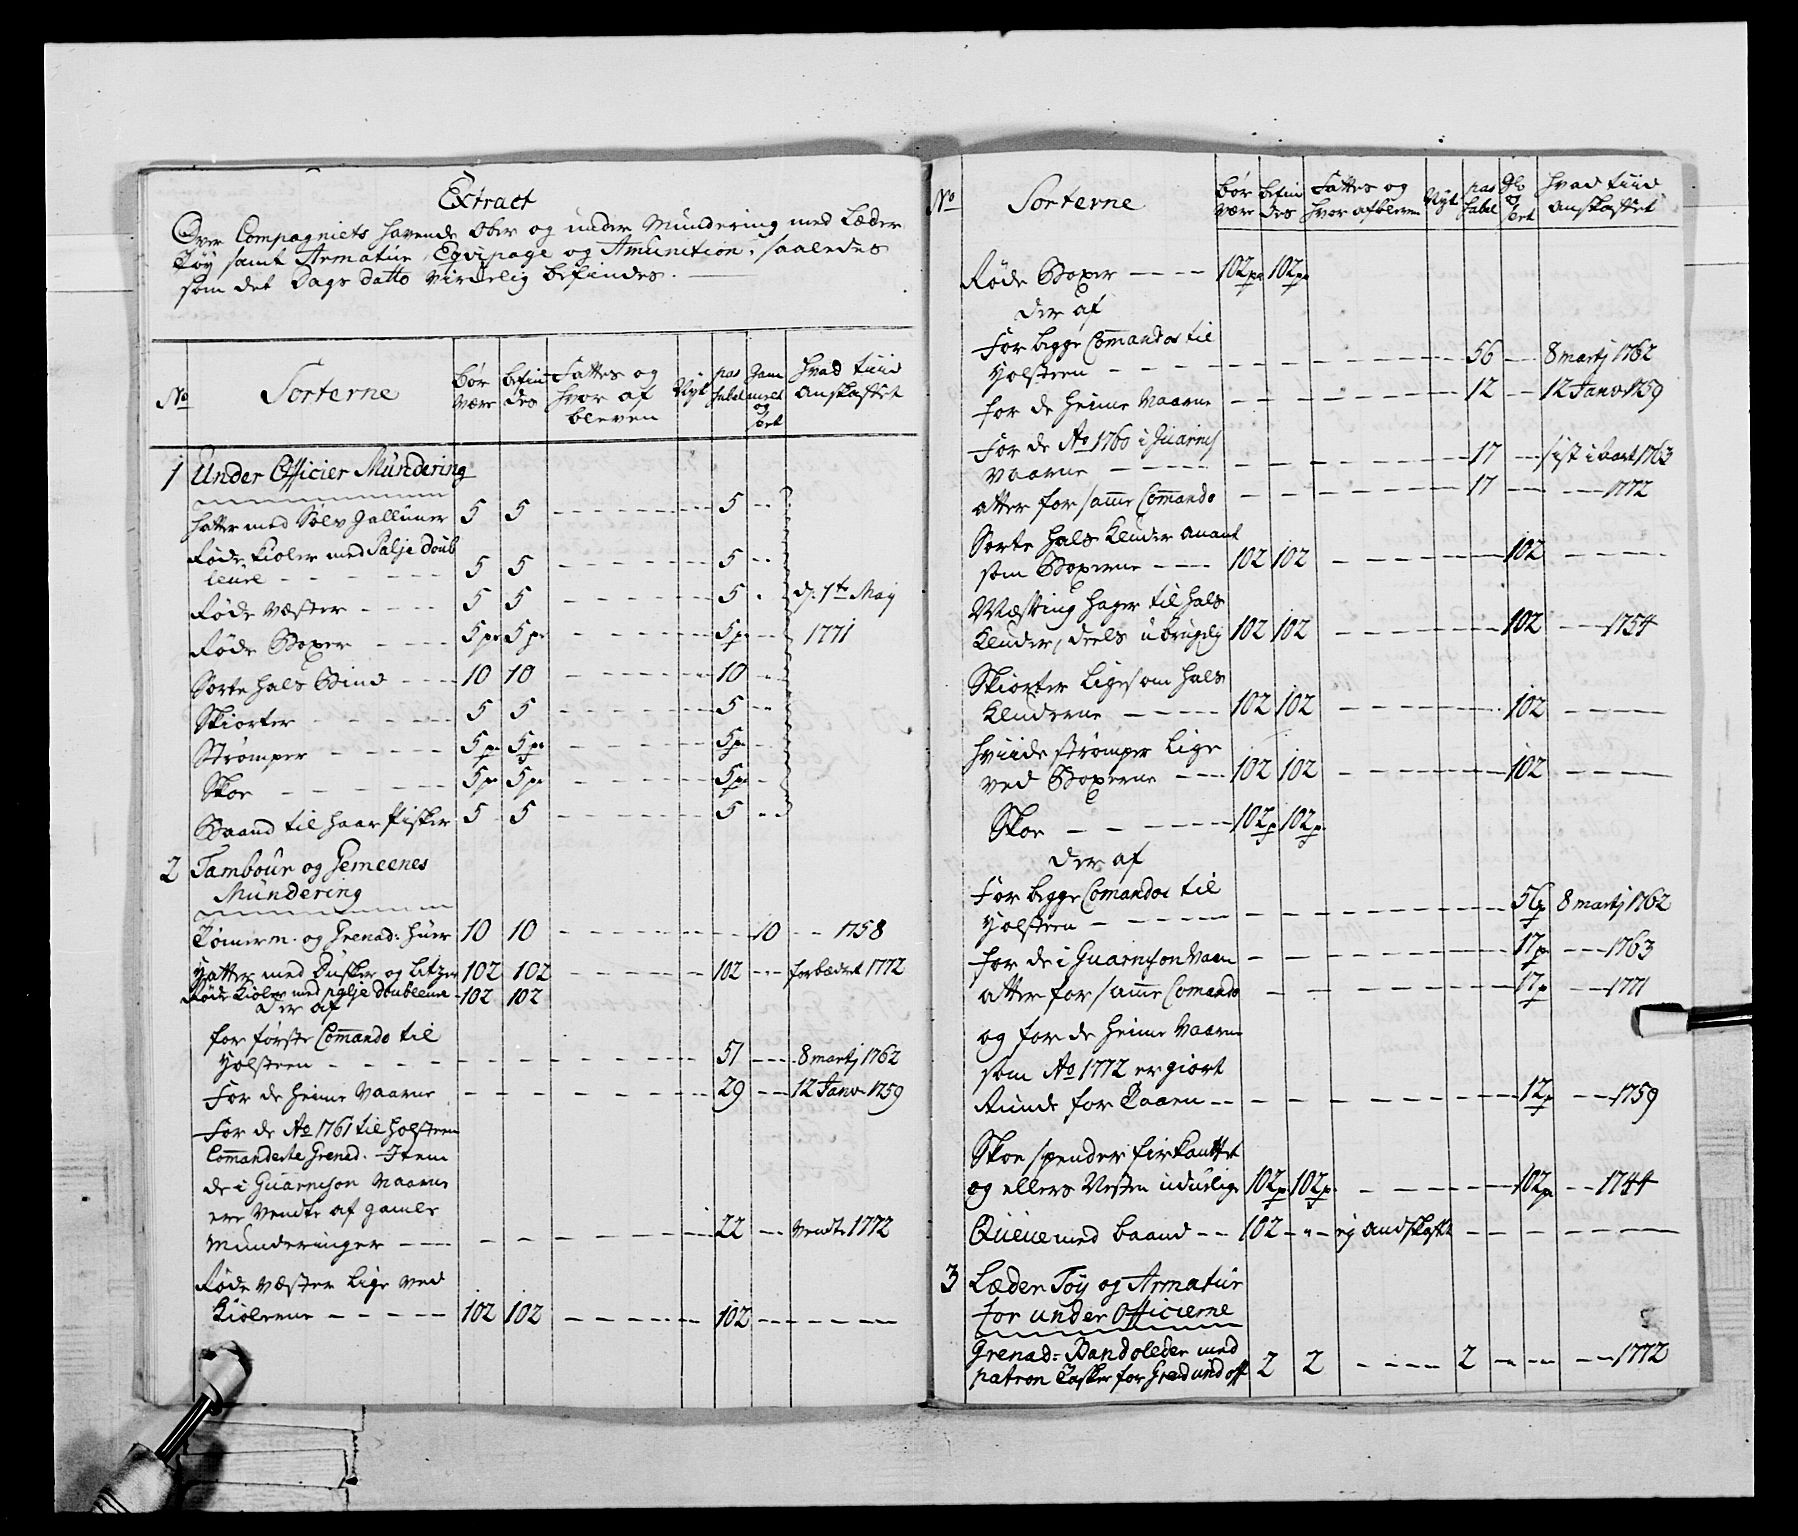 Extract
Over Compagniets havende Ober og under Mundering med Læder
Tøy samt Armatur, Eqvipage og Amunition, saaledes
som det Dags Datto virkelig befindes.
No Sorterne bør være befindes Fattes og hvor af bleven Nyt passabel gammelt og slet hvad tiid anskaffet
1 Under Officier Mundering
Hatter med Sølv Galluner 5 5 5
Røde Kioler med Palje Doub
leure 5 5 5
Røde Væster 5 5 5 d. 1te May
Røde Boxer 5pr 5pr 5pr 1771
Sorte Hals Bind 10 10 10
Skiorter 5 5 5
Strømper 5pr 5pr 5pr
Skoe 5pr 5pr 5pr
Baand til Haar Pisker 5 5 5
2 Tambour og Gemeenes
Mundering
Tømerm. og Grenad: Huer 10 10 10 1758
Hatter med Dusker og Litzer 102 102 102 forbædret 1772
Røde Kioler med palje doubleure 102 102
Der af
for første Comando til
Holsteen 51 8 martj 1762
For de Heime Vaarne 29 12 Janv 1759
For de Ao 1761 til Holsteen
Commanderte Grenad. Item
de i Guarnison Vaarne
ere Vendte af gamle
Munderinger 22 Vendte 1772
Røde Væster Lige ved
Kiolerne 102 102 102
No Sorterne bør være befindes Fattes og hvor afbleven Nyt passabel hvad tiid anskaffet
Røde Boxer 102pr 102pr
der af
For begge Comandos til
Holsteen 56 8 martj 1762
for de Heime Vaarne 12 12 Janv 1759
For de Ao 1760 i Guarns
Vaarne 17 1763
atter for samme Comando 17 1772
Sorte Hals Kluder
som Boxerne 102 102 102
Mæssing Hager til Hals
Kluder, deels ubrugelig 102 102 102 1754
Skiorter Ligesom Hals
Kluderne 102 102 102
Hviide strømper Lige
ved Boxerne 102 102 102
Skoe 102p 102p
Der af
For begge Comandos til
Holsteen 56p 8 martj 1762
for de i Guarnison Vaarn 17p 1763
atter for samme Comando 17p 1771
og for de Heime Vaarne
som Ao 1772 er giort
Runde for Taaen 12p 1759
Skoe spender firkanttet
og ellers Nesten uduelige 102p 102p 102p 1744
Queue med baand 102 " ej andskaffet
3 Læder Tøy og Armatur
for under Officierne
Grenad: Bandoleder med
patron Tasker for Grend und off 2 2 2 1772